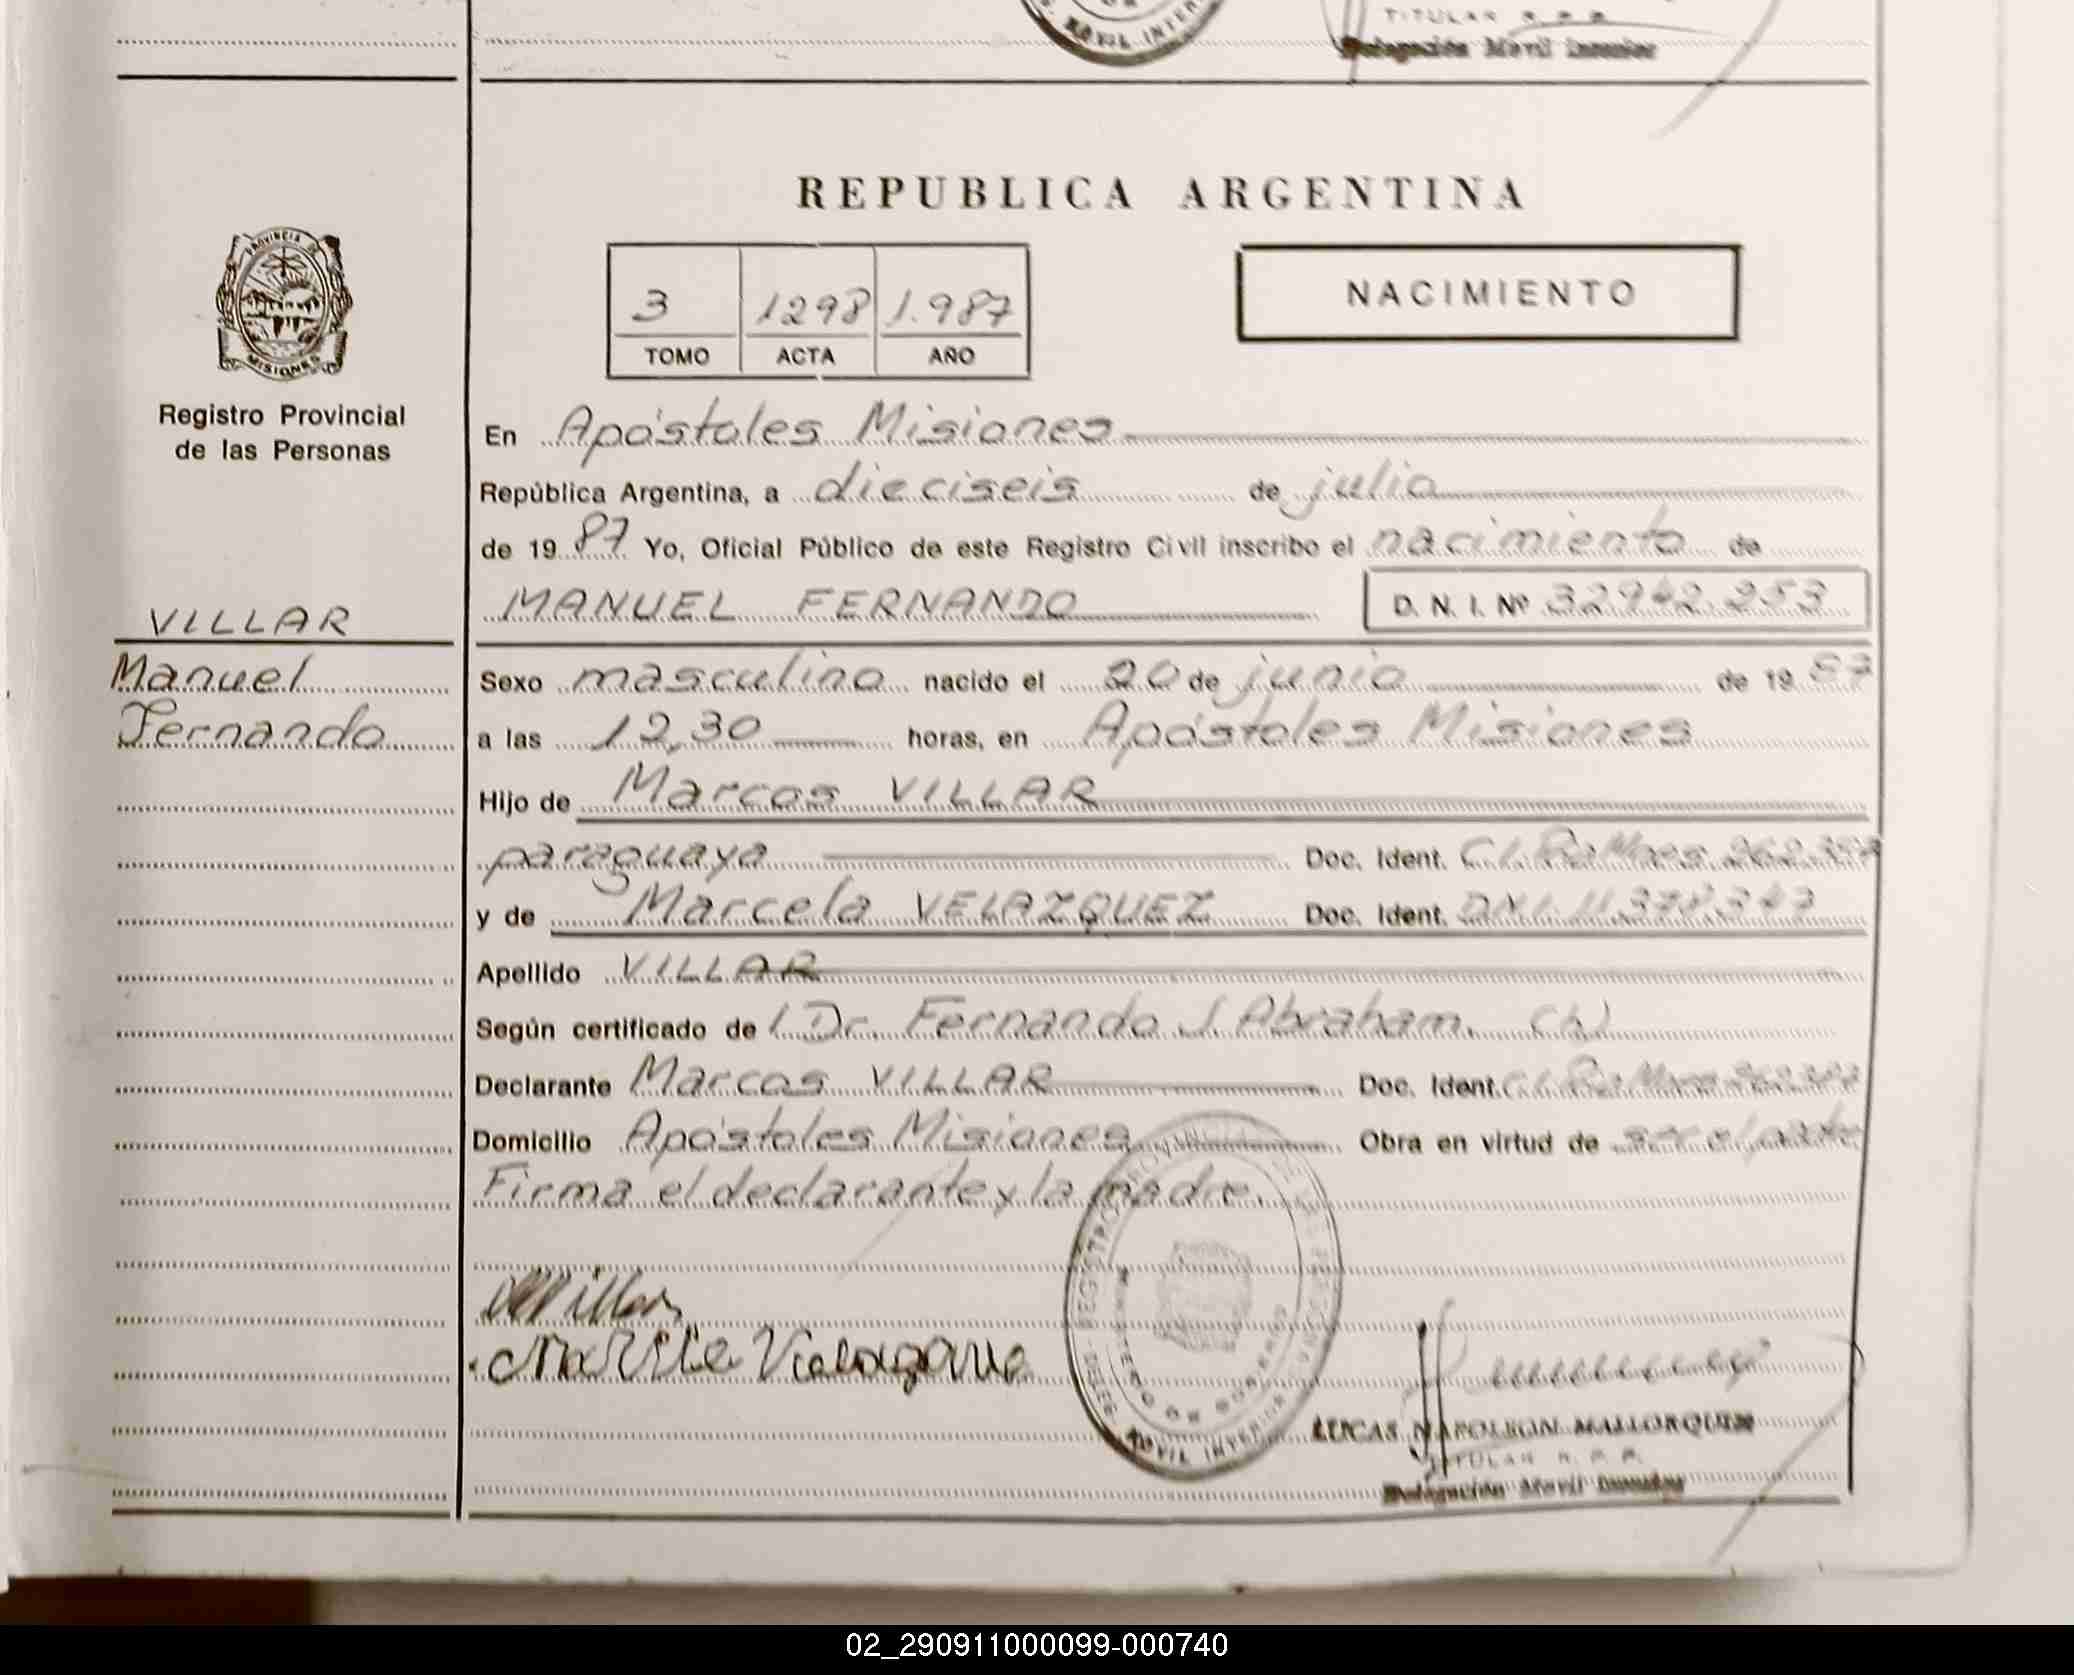 TITULAR R. P. P.
Delegación Movil Interior
MOVIL INTER
REPUBLICA ARGENTINA
PROVINCIA DE
MISIONES
3 1298 1.987
TOMO ACTA AÑO
NACIMIENTO
Registro Provincial
de las Personas
En Apóstoles Misiones
República Argentina, a dieciseis de julio
de 19 87 Yo, Oficial Público de este Registro Civil inscribo el nacimiento de
MANUEL FERNANDO D. N. I. Nº 32942.253
VILLAR
Manuel
Fernando
Sexo masculino nacido el 20 de junio de 19 87
a las 12,30 horas, en Apóstoles Misiones
Hijo de Marcos VILLAR
paraguaya Doc. Ident. C.I.
y de Marcela VELAZQUEZ Doc. Ident. DNI. 11.378.347
Apellido VILLAR
Según certificado de Dr. Fernando J Abraham.
Declarante Marcos VILLAR Doc. Ident. C.I.
Domicilio Apóstoles Misiones Obra en virtud de ser el padre
Firma el declarante y la madre.
MVillar
REGISTRO PROVINCIAL DE LAS PERSONAS
MINISTERIO DE GOBIERNO
MOVIL INTERIOR
LUCAS NAPOLEON MALLORQUIN
TITULAR R. P. P.
Delegación Movil Interior
02_290911000099-000740